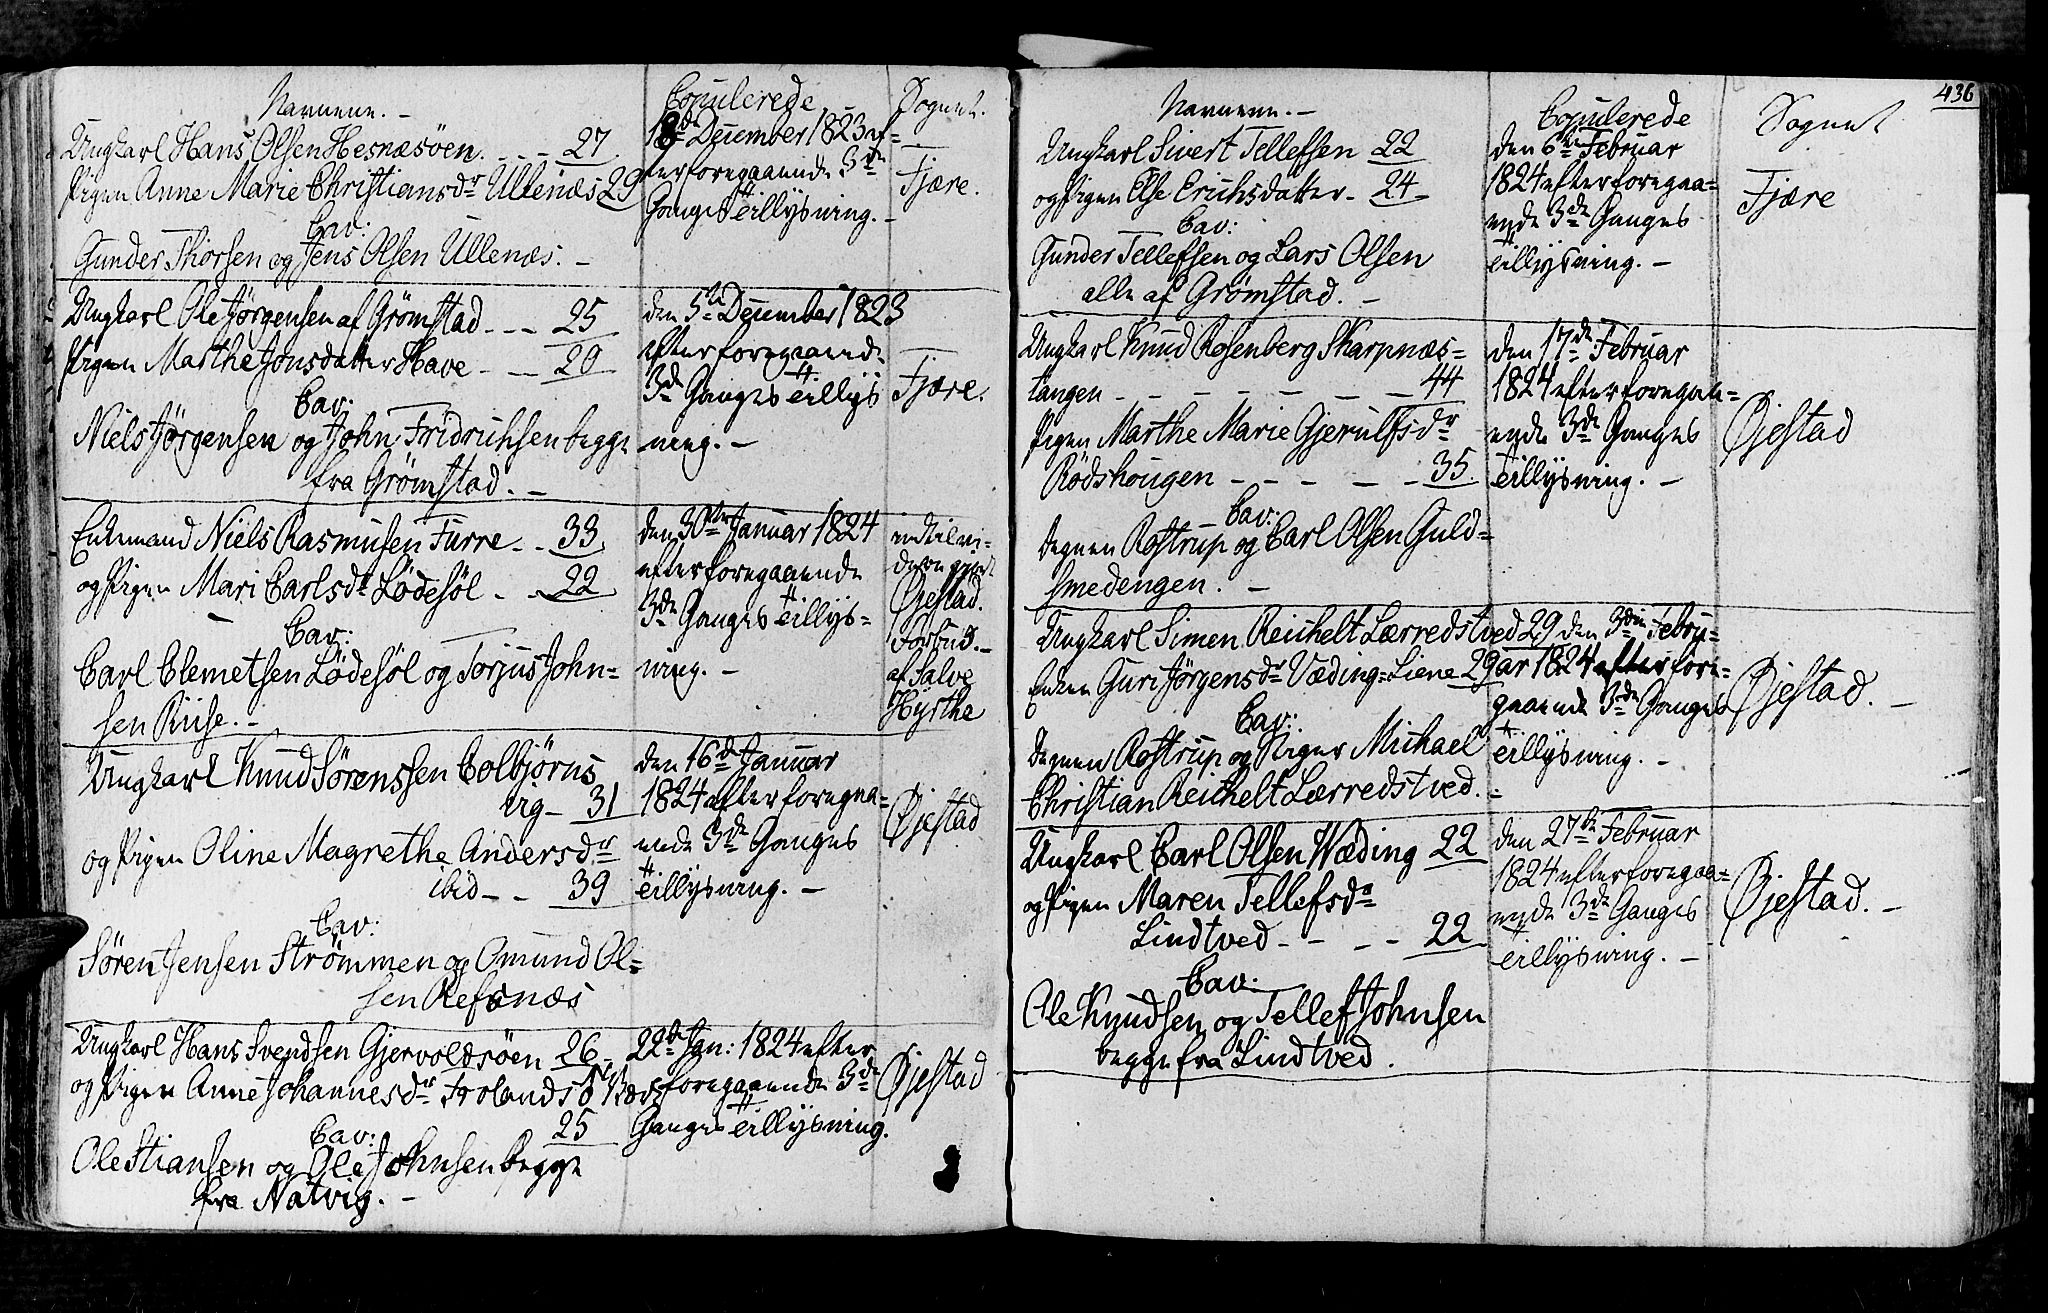 Navnene. -
Copulerede
Sognet.
Ungkarl Hans Olsen Hesnæsöen. - - - 27
Pigen Anne Marie Christiansdr Ullenæs 29
Cav:
Gunder Thorsen og Jens Olsen Ullenæs. -
18de December 1823 ef-
terforegaaende 3de
Ganges tillysning. -
Fjære.
Ungkarl Ole Jörgensen af Grömstad - - - 25
Pigen Marthe Jonsdatter Have - - - 20
Cav:
Niels Jörgensen og John Fridrichsen begge
fra Grömstad. -
den 5te December 1823
efterforegaaende
3de Ganges tillys
ning. -
Fjære.
Enkemand Niels Rasmusen Furre - - 33
og Pigen Mari Carlsdr Lödesöl - - 22
Cav:
Carl Clemetsen Lödesöl og Torjus John=
sen Riise. -
den 30te Januar 1824
efterforegaaende
3de Ganges tillys=
ning. -
indtil vi-
dere gjort
Öjestad.
Forbud. -
af Salve
Hyrthe
Ungkarl Knud Sörenssen Colbjörns
vig - 31
og Pigen Oline Magrethe Andersdr
ibid - - 39
Cav:
Sören Jensen Strömmen og Omund Ol=
sen Refsnæs
den 16de Januar
1824 efterforegaa=
ende 3de Ganges
tillysning. -
Öjestad
Ungkarl Hans Svendsen Gjervoldsöen 26
og Pigen Anne Johannesdr Frolands
25
Cav:
Ole Stiansen og Ole Johnsen begge
fra Natvig. -
22de Jan: 1824 efter
foregaaende 3de
Ganges tillysning.
Öjestad
436
Navnene. -
Copulerede
Sognet
Ungkarl Sivert Tellefsen 22
og Pigen Else Erichsdatter - 24
Cav:
Gunder Tellefsen og Lars Olsen
alle af Grömstad. -
den 6te Februar
1824 efterforegaa=
ende 3de Ganges
tillysning. -
Fjære
Ungkarl Knud Rosenberg Skarpnæs=
tangen - - - - - - 44
Pigen Marthe Marie Gjerulfsdr
Rödshougen - - - - - 35.
Cav:
degnen Rostrup og Carl Olsen Guld=
smedengen. -
den 17de Februar
1824 efterforegaa=
ende 3de Ganges
tillysning. -
Öjestad
Ungkarl Simen Reichelt Lærredstved 29
Enken Guri Jörgensdr Væding=Liene 29
Cav:
degnen Rostrup og Niger Michael
Christian Reichelt Lærredstved. -
den 3die Febru=
ar 1824 efterfore=
gaaende 3de Ganges
tillysning. -
Öjestad. -
Ungkarl Carl Olsen Wæding 22
og Pigen Maren Tellefsdr
Lindtved - - - - 22
Cav:
Ole Knudsen og Tellef Johnsen
begge fra Lindtved.
den 27de Februar
1824 efterforegaa=
ende 3de Ganges
tillysning. -
Öjestad. -